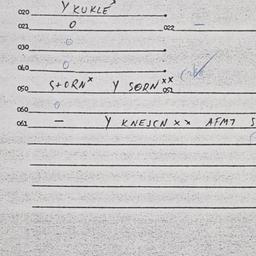 020 Y KUKLE
021 0 022 -
030 0
040 0
050 S+ORN x Y SORN xx 051
060 0
061 - Y KNEJCN x x AFM7 S